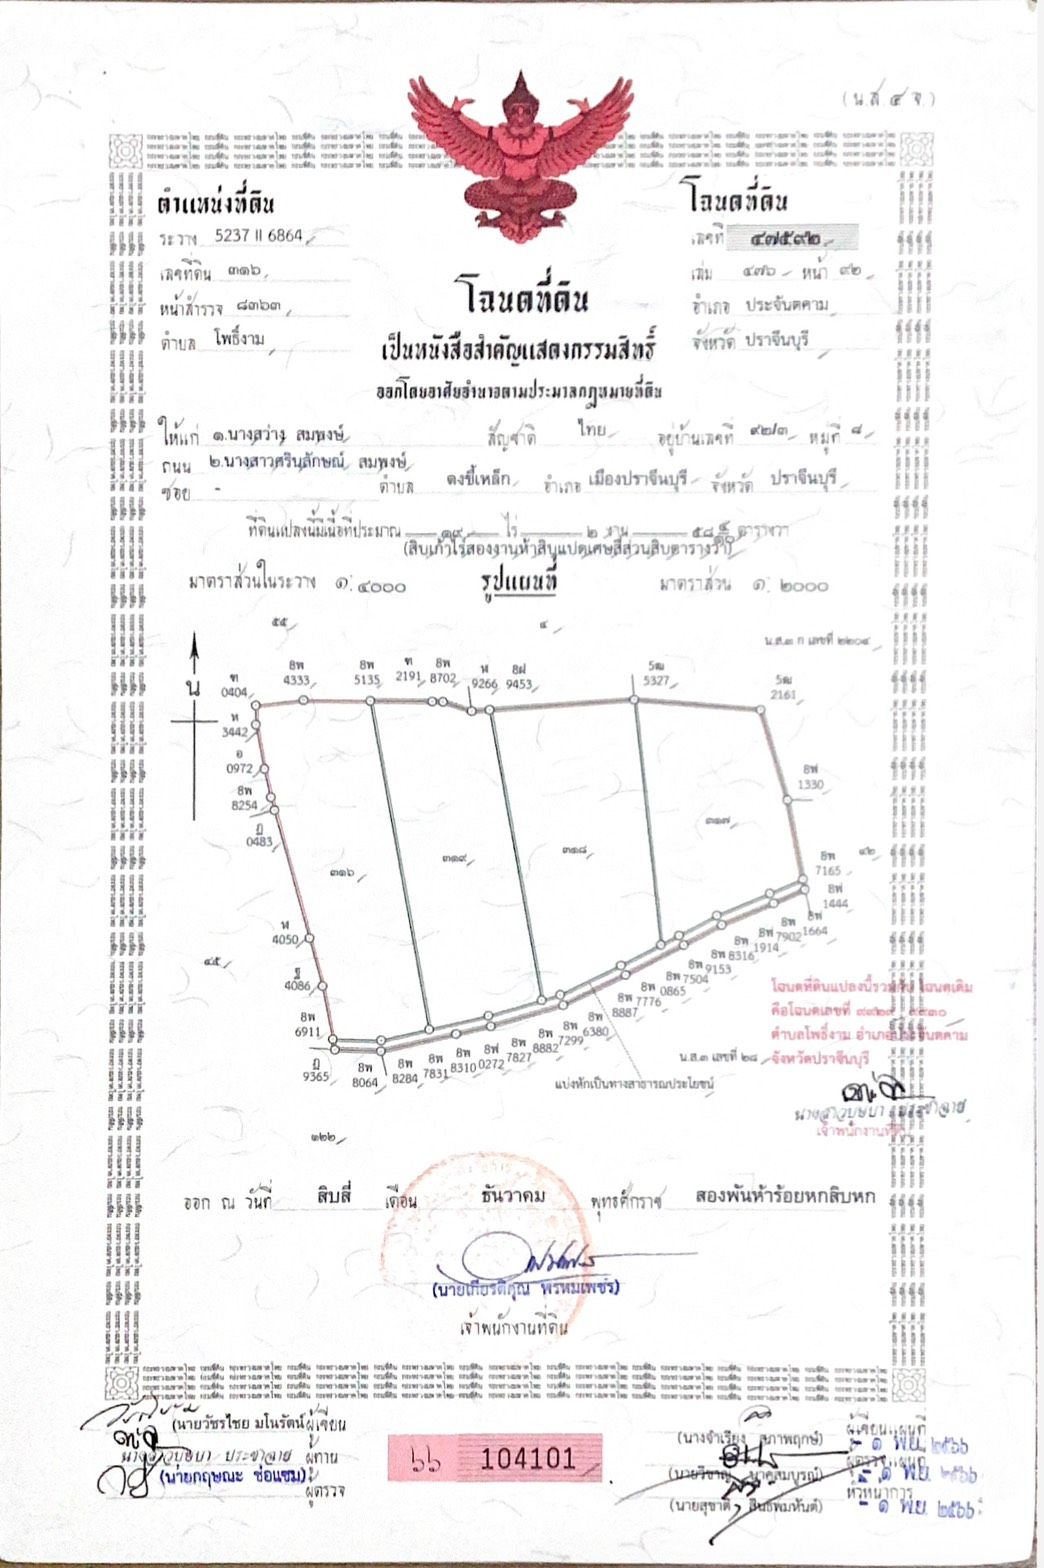 (น.ส.๔ จ.)
ตำแหน่งที่ดิน
โฉนดที่ดิน
ระวาง 5237 II 6864
เลขที่ ๔๗๕๙๒
เลขที่ดิน ๓๑๖
เล่ม ๔๗๖ หน้า ๙๒
หน้าสำรวจ ๘๓๖๓
อำเภอ ประจันตคาม
ตำบล โพธิ์งาม
จังหวัด ปราจีนบุรี
โฉนดที่ดิน
เป็นหนังสือสำคัญแสดงกรรมสิทธิ์
ออกโดยอาศัยอำนาจตามประมวลกฎหมายที่ดิน
ให้แก่ ๑.นางสว่าง สมพงษ์ สัญชาติ ไทย อยู่บ้านเลขที่ ๙๒/๓ หมู่ที่ ๘
ถนน ๒.นางสาวศรินลักษณ์ สมพงษ์
ซอย - ตำบล ดงขี้เหล็ก อำเภอ เมืองปราจีนบุรี จังหวัด ปราจีนบุรี
ที่ดินแปลงนี้มีเนื้อที่ประมาณ ๑๙ ไร่ ๒ งาน ๕๘ ตารางวา
(สิบเก้าไร่สองงานห้าสิบแปดเศษสี่ส่วนสิบตารางวา)
มาตราส่วนในระวาง ๑:๔๐๐๐
รูปแผนที่
มาตราส่วน ๑:๒๐๐๐
๕๕
๔
น.ส.๓ ก เลขที่ ๒๒๐๔
น
0404
8พ 4333
8พ 5135
2191
8พ 8702
9266
8ฝ 9453
5ฒ 5327
5ฒ 2161
3442
อ 0972
8พ 8254
0483
8ฟ 1330
๓๑๖
๓๑๙
๓๑๘
๓๑๗
๔๒
8พ 7165
8ฟ 1444
8ฟ 1664
8พ 7902
8ฟ 1914
8พ 8316
8พ 9153
8พ 7504
8ฟ 0865
8พ 7776
8พ 8887
8พ 6380
8พ 7299
8พ 8882
8พ 7827
8ฟ 0272
8พ 8310
8พ 7831
8พ 8284
8พ 8064
9365
8พ 6911
4086
4050
๔๕
น.ส.๓ เลขที่ ๒๘
แบ่งหักเป็นทางสาธารณประโยชน์
๑๒๒
โฉนดที่ดินแปลงนี้รวม โฉนดเดิม
คือโฉนดเลขที่
ตำบลโพธิ์งาม อำเภอประจันตคาม
จังหวัดปราจีนบุรี
นางสาวบุษบา ประชาฉาย
เจ้าพนักงานที่ดิน
ออก ณ วันที่ สิบสี่ เดือน ธันวาคม พุทธศักราช สองพันห้าร้อยหกสิบหก
(นายเกียรติคุณ พรหมเพชร)
เจ้าพนักงานที่ดิน
(นายวัชรไชย มโนรัตน์) ผู้เขียน
นางสาวบุษบา ประชาฉาย ผู้ทาน
(นายกฤษณะ ช่อแซม) ผู้ตรวจ
๖๖ 104101
(นางจำเรียง สุภาพฤกษ์) ผู้เขียนแผนที่
- ๑ พ.ย. ๒๕๖๖
(นายวิชาญ นาคสมบูรณ์) ผู้ตรวจแผนที่
- ๑ พ.ย. ๒๕๖๖
(นายสุชาติ สินธพมหันต์) หัวหน้าการ
- ๑ พ.ย. ๒๕๖๖